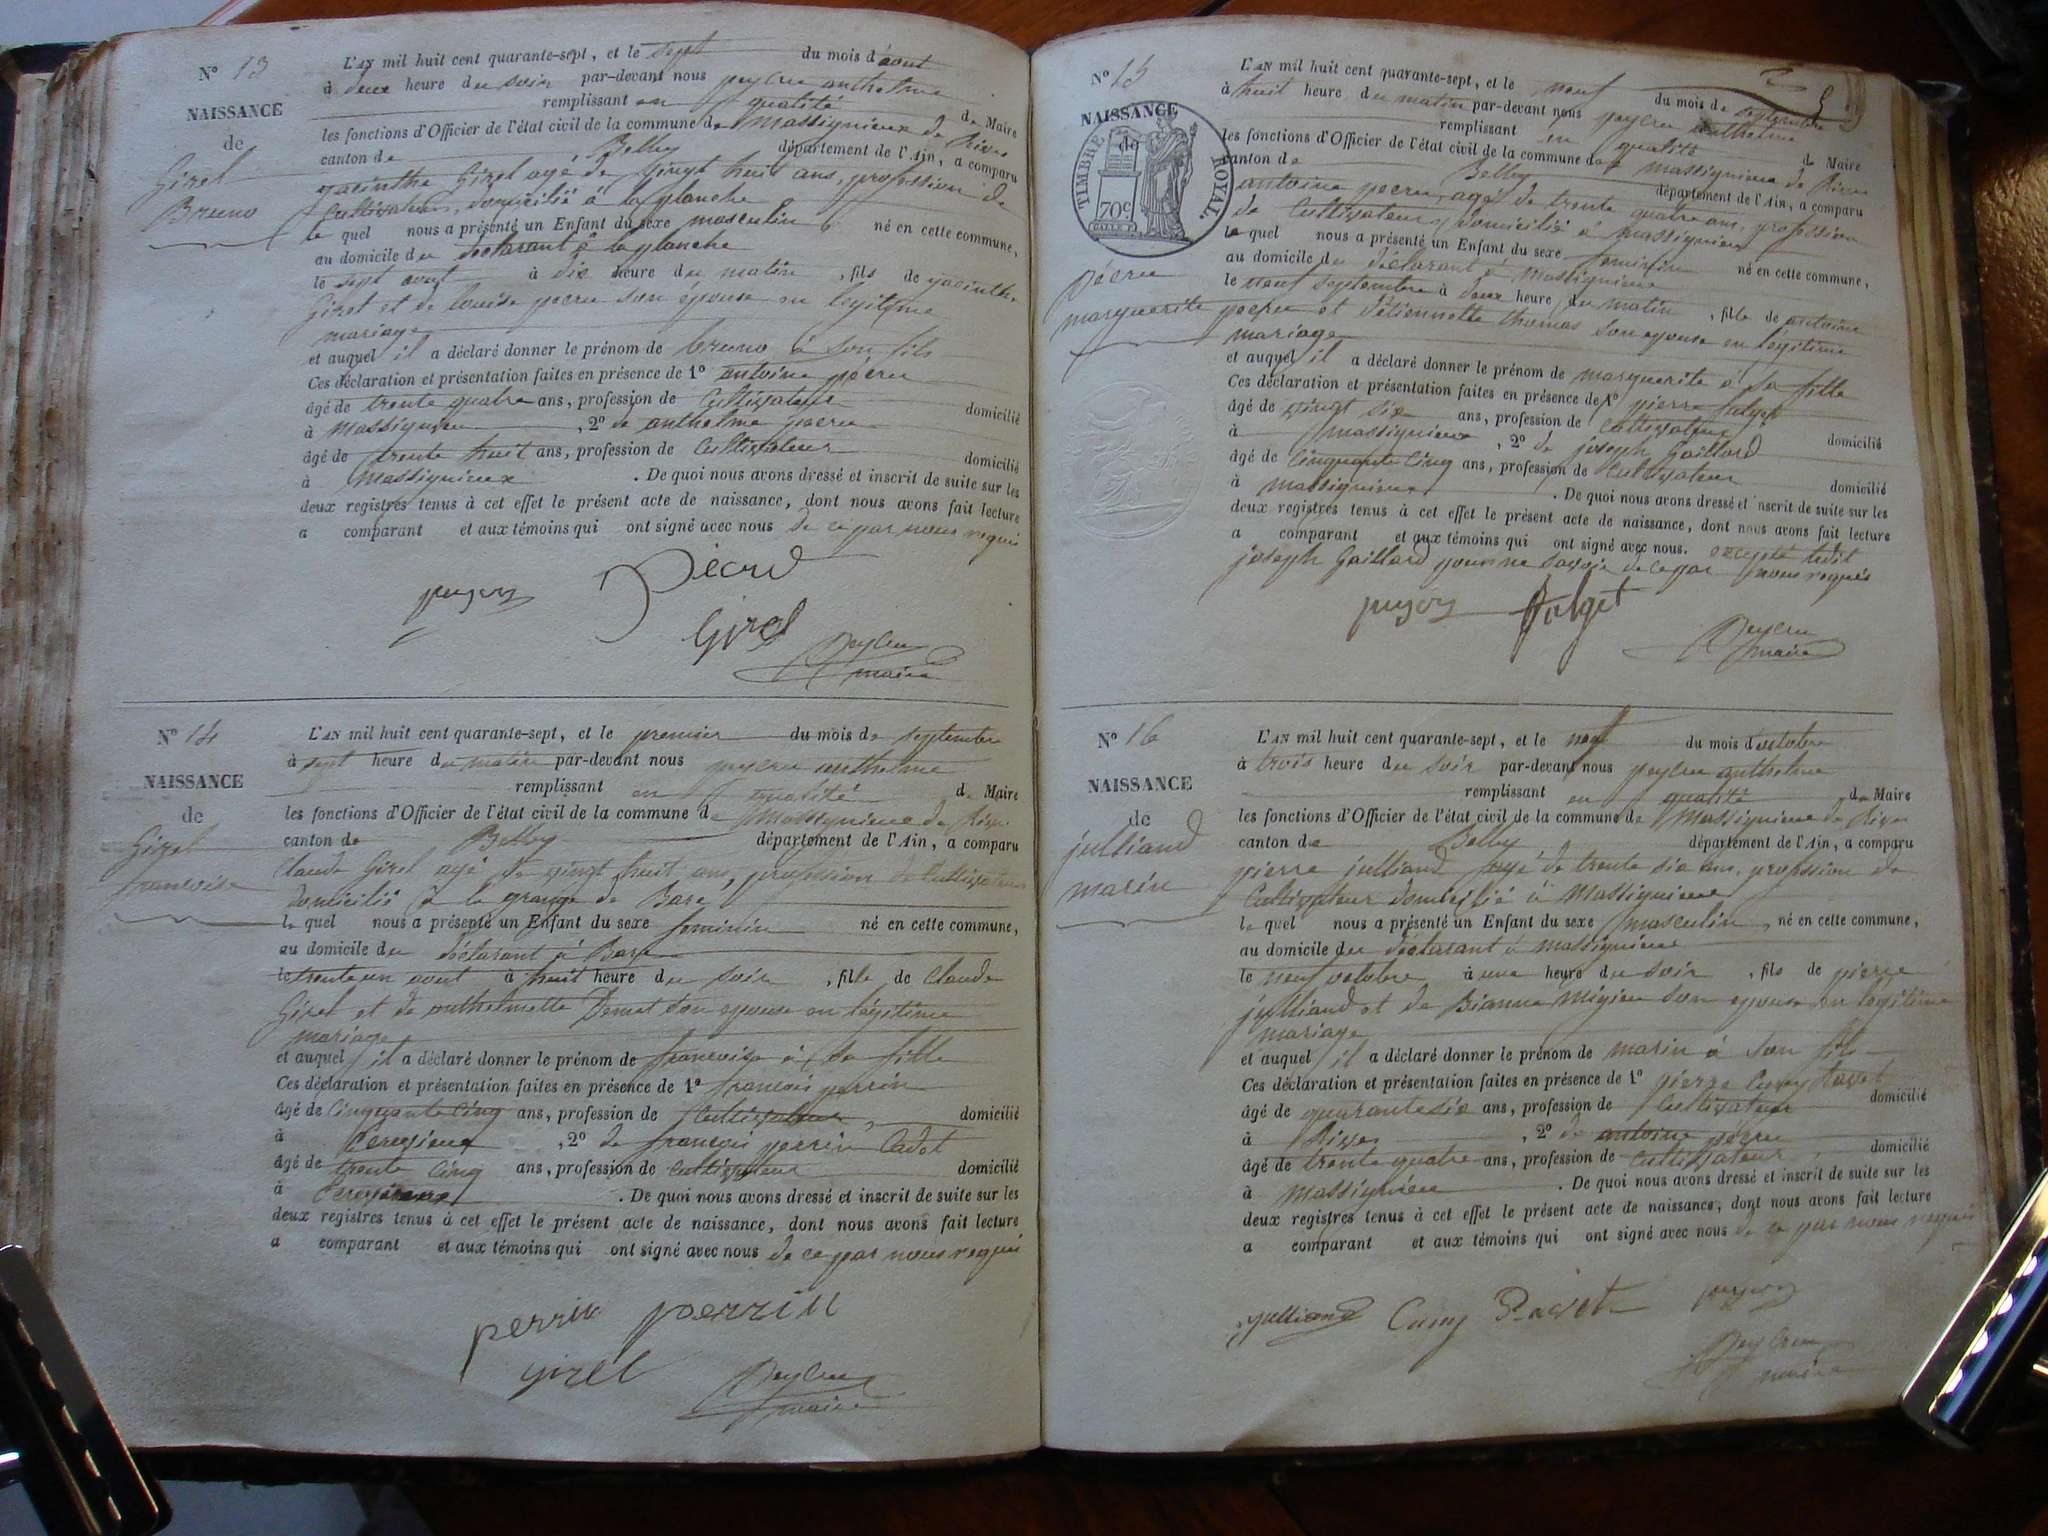 N° 13
NAISSANCE
de
Girel
Bruno
L'AN mil huit cent quarante-sept, et le sept du mois d'aout
à deux heure du soir par-devant nous peycru anthelme
remplissant en qualité de Maire
les fonctions d'Officier de l'état civil de la commune de Massignieux de Rives
canton de Belley département de l'Ain, a comparu
yacinthe Girel agé de vingt huit ans, profession de
Cultivateur, domicilié à la planche
le quel nous a présenté un Enfant du sexe masculin né en cette commune,
au domicile du déclarant à la planche
le sept aout à dix heure du matin, fils de yacinthe
Girel et de louise pecru son épouse en legitime
mariage
et auquel il a déclaré donner le prénom de bruno à son fils
Ces déclaration et présentation faites en présence de 1° antoine pécru
âgé de trente quatre ans, profession de Cultivateur domicilié
à Massignieu, 2° de anthelme
âgé de trente huit ans, profession de Cultivateur domicilié
à Massignieux. De quoi nous avons dressé et inscrit de suite sur les
deux registres tenus à cet effet le présent acte de naissance, dont nous avons fait lecture
a comparant et aux témoins qui ont signé avec nous de ce par nous requis
Girel
Peycru
maire
N° 14
NAISSANCE
de
Girel
francoise
L'AN mil huit cent quarante-sept, et le premier du mois de septembre
à sept heure du matin par-devant nous peycru anthelme
remplissant en qualité de Maire
les fonctions d'Officier de l'état civil de la commune de Massignieux de Rives
canton de Belley département de l'Ain, a comparu
Claude Girel agé de vingt huit ans, profession de Cultivateur
domicilié à la grange de Bare
le quel nous a présenté un Enfant du sexe feminin né en cette commune,
au domicile du déclarant à Bare
le trente un aout à huit heure du soir, fille de Claude
Girel et de anthelmette Demet son epouse en légitime
mariage
et auquel il a déclaré donner le prénom de francoise à sa fille
Ces déclaration et présentation faites en présence de 1° francois perrin
âgé de Cinquante Cinq ans, profession de Cultivateur, domicilié
à, 2° de francois perrin Cadet
âgé de trente Cinq ans, profession de Cultivateur domicilié
à. De quoi nous avons dressé et inscrit de suite sur les
deux registres tenus à cet effet le présent acte de naissance, dont nous avons fait lecture
a comparant et aux témoins qui ont signé avec nous de ce par nous requi
perrin perrin
girel
Peycru
maire
N° 15
NAISSANCE
de
TIMBRE ROYAL.
70c
pécru
marguerite
5
L'AN mil huit cent quarante-sept, et le neuf du mois de septembre
à huit heure du matin par-devant nous peycru anthelme
remplissant en qualité de Maire
les fonctions d'Officier de l'état civil de la commune de massignieu de Rives
canton de Belley département de l'Ain, a comparu
antoine pecru, agé de trente quatre ans, profession
de Cultivateur domicilié à massignieu
le quel nous a présenté un Enfant du sexe feminin né en cette commune,
au domicile du déclarant à Massignieu
le neuf septembre à deux heure du matin, fille de antoine
pecru et d'étiennette thomas son epouse en legitime
mariage
et auquel il a déclaré donner le prénom de marguerite à sa fille
Ces déclaration et présentation faites en présence de 1° pierre falget
âgé de vingt six ans, profession de Cultivateur domicilié
à massignieux, 2° de joseph Gaillard
âgé de Cinquante Cinq ans, profession de Cultivateur domicilié
à massignieu. De quoi nous avons dressé et inscrit de suite sur les
deux registres tenus à cet effet le présent acte de naissance, dont nous avons fait lecture
a comparant et aux témoins qui ont signé avec nous. excepté ledit
joseph Gaillard pour ne savoir de ce par nous requis
falget
Peycru
maire
N° 16
NAISSANCE
de
julliand
marin
L'AN mil huit cent quarante-sept, et le neuf du mois d'octobre
à trois heure du soir par-devant nous peycru anthelme
remplissant en qualité de Maire
les fonctions d'Officier de l'état civil de la commune de Massignieu de Rives
canton de Belley département de l'Ain, a comparu
pierre julliand agé de trente six ans, profession de
Cultivateur domicilié à Massignieu
le quel nous a présenté un Enfant du sexe masculin, né en cette commune,
au domicile du déclarant à massignieu
le neuf octobre à une heure du soir, fils de pierre
julliand et de son epouse en legitime
mariage
et auquel il a déclaré donner le prénom de marin à son fils
Ces déclaration et présentation faites en présence de 1° pierre Cuny Ravet
âgé de quarante six ans, profession de Cultivateur domicilié
à Rives, 2° de antoine pécru
âgé de trente quatre ans, profession de Cultivateur domicilié
à Massignieu. De quoi nous avons dressé et inscrit de suite sur les
deux registres tenus à cet effet le présent acte de naissance, dont nous avons fait lecture
a comparant et aux témoins qui ont signé avec nous de ce par nous requis
julliand Cuny Ravet
Peycru
maire